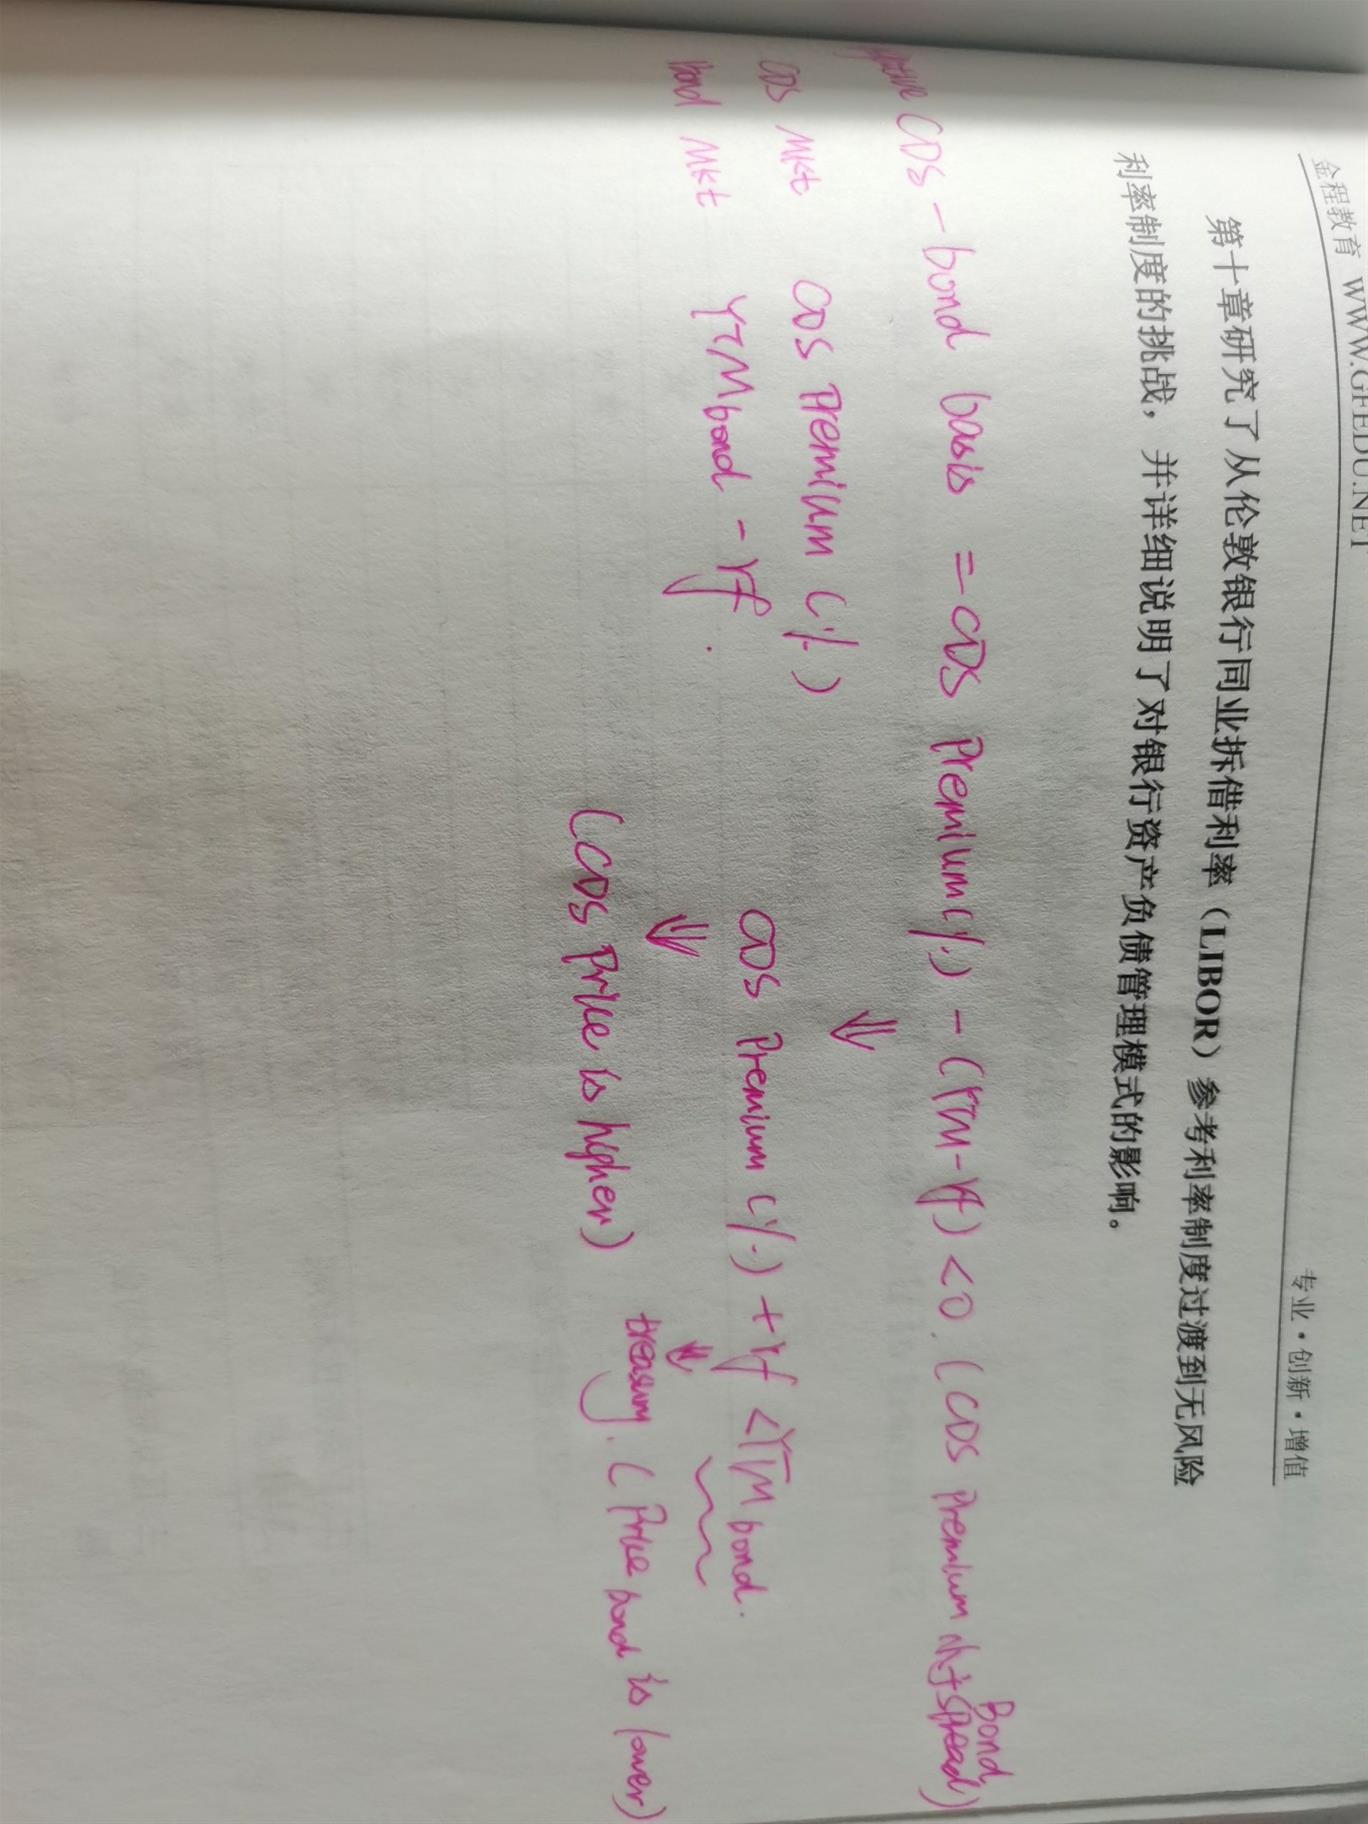 金程教育 WWW.GFEDU.NET
专业·创新·增值
第十章研究了从伦敦银行同业拆借利率（LIBOR）参考利率制度过渡到无风险
利率制度的挑战，并详细说明了对银行资产负债管理模式的影响。
CDS - bond basis = CDS Premium(%) - (YTM - rf) < 0. (CDS Premium Bond spread)
CDS Mkt CDS Premium (%)
⇓
bond Mkt YTM bond - rf.
CDS Premium (%) + rf < YTM bond.
⇓ ⇓
treasury.
(CDS Price is higher) (Price bond is lower)